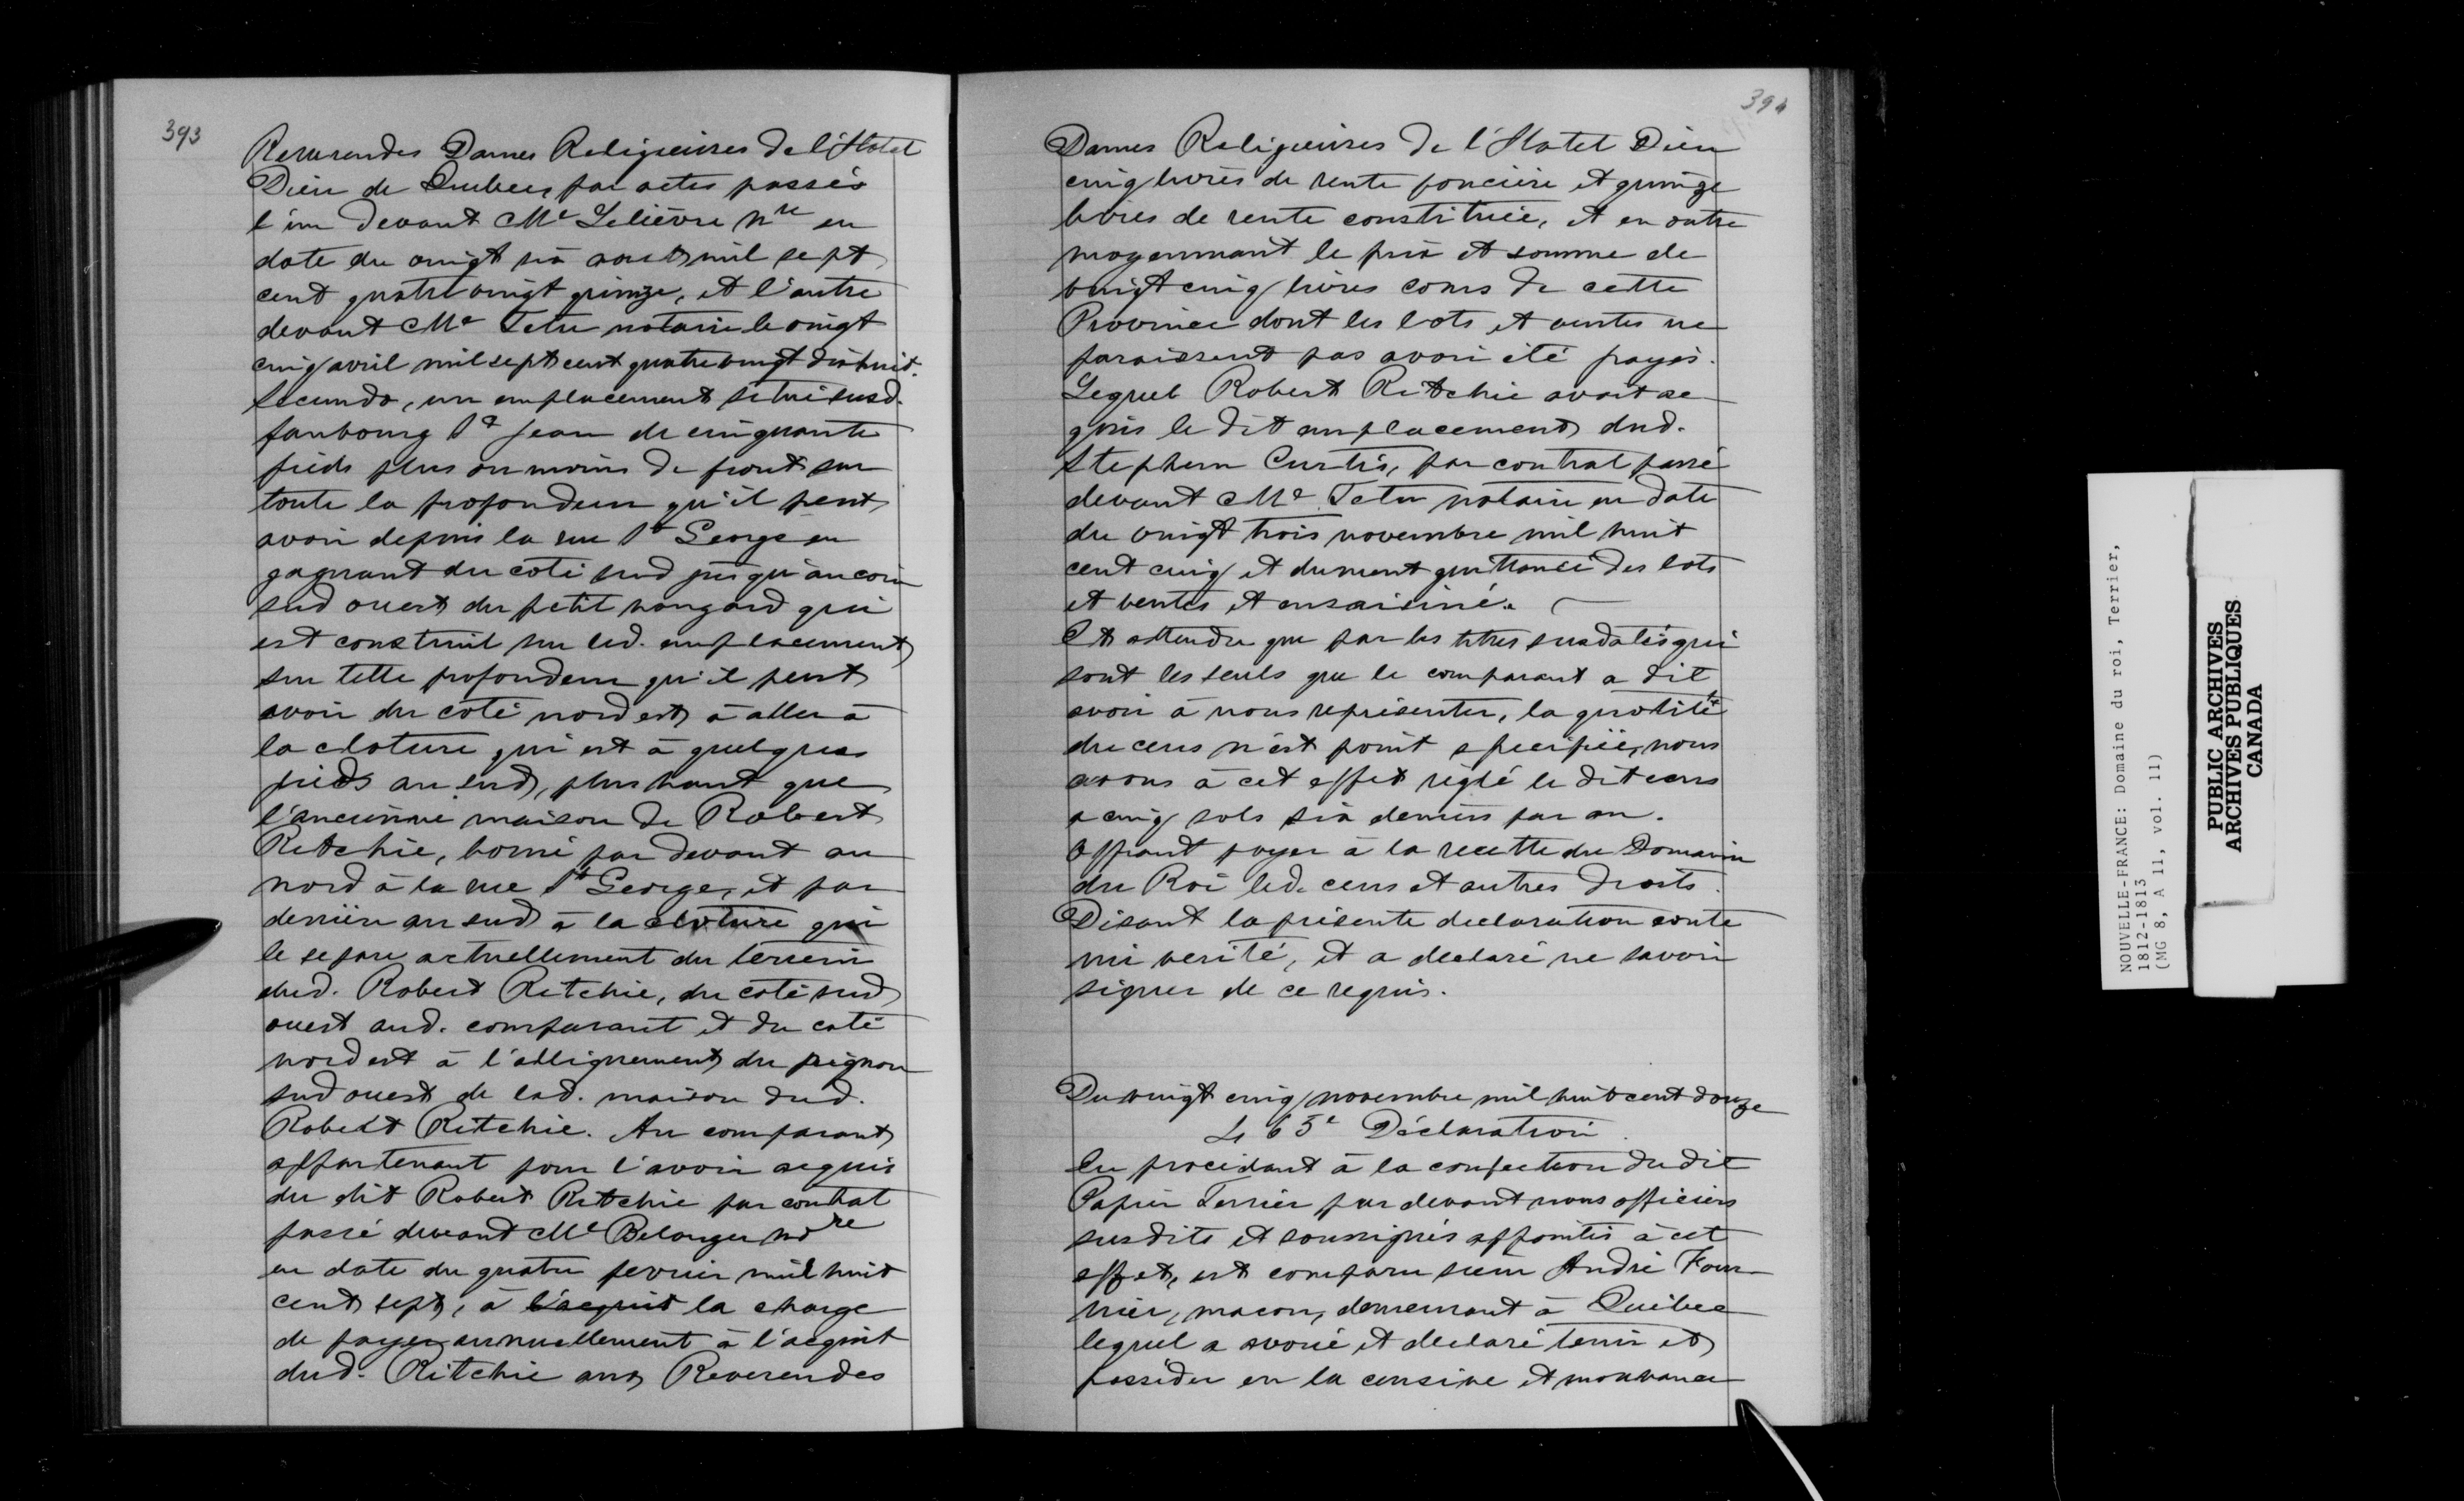 393
Reverendes Dames Religieuses de l'Hotel
Dieu de Quebec, par actes passés
l'un devant Me Lelièvre Nre en
date du vingt six aout mil sept
cent quatre vingt quinze, et l'autre
devant Me Tetu notaire le vingt
cinq avril mil sept cent quatre vingt dix huit.
Secundo, un emplacement situé susd.
faubourg St Jean de cinquante
pieds plus ou moins de front sur
toute la profondeur qu'il peut
avoir depuis la rue St George en
gagnant du coté sud jusqu'au coin
sud ouest du petit hangard qui
est construit sur led. emplacement
sur telle profondeur qu'il peut
avoir du coté nord est à aller à
la cloture qui est à quelques
pieds au sud, plus haut que
l'ancienne maison de Robert
Ritchie, borné par devant au
nord à la rue St George, et par
derriere au sud à la cloture qui
le separe actuellement du terrein
dud. Robert Ritchie, du coté sud
ouest aud. comparant et du coté
nord est à l'allignement du peignon
sud ouest de lad. maison dud.
Robert Ritchie. Au comparant
appartenant pour l'avoir acquis
du dit Robert Ritchie par contrat
passé devant Me Belanger no re
en date du quatre fevrier mil huit
cent sept, à l'acquit la charge
de payer annuellement à l'acquit
dud. Ritchie aux Reverendes
394
Dames Religieuses de l'Hotel Dieu
cinq livres de rente fonciere et quinze
livres de rente constituée, et en outre
moyennant le prix et somme de
vingt cinq livres cours de cette
Province dont les lots et ventes ne
paraissent pas avoir été payés.
Lequel Robert Ritchie avait ac
quis le dit emplacement dud.
Stephen Curtis, par contrat passé
devant Me Tetu notaire en date
du vingt trois novembre mil huit
cent cinq et dument quittancé des lots
et ventes et ensaisiné.
Et attendu que par les titres susdatés qui
sont les seuls que le comparant a dit
avoir à nous représenter, la quotité
du cens n'est point specifiée, nous
avons à cet effet réglé le dit cens
a cinq sols six deniers par an.
Offrant payer à la recette du Domaine
du Roi led. cens et autres droits.
Disant la présente declaration conte
nir verité, et a declaré ne savoir
signer de ce requis.
Du vingt cinq novembre mil huit cent douze
463e Déclaration
En procédant à la confection du dit
Papier Terrier par devant nous officiers
susdits et soussignés appointés à cet
effet, est comparu sieur André Four
nier, macon, demeurant à Quebec
lequel a avoué et declaré tenir et
posseder en la censive et mouvance
NOUVELLE-FRANCE: Domaine du roi, Terrier,
1812-1813
(MG 8, A 11, vol. 11)
PUBLIC ARCHIVES
ARCHIVES PUBLIQUES
CANADA